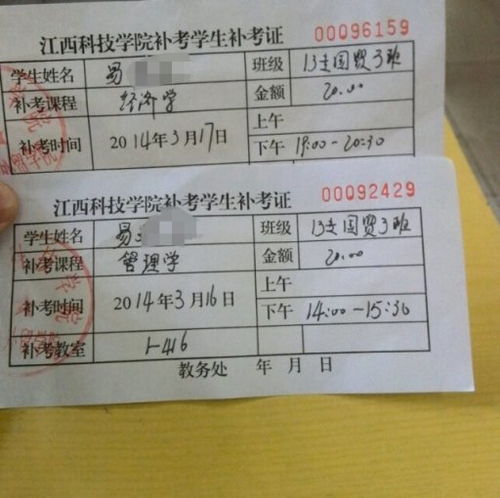 江西科技学院补考学生补考证 00096159
学生姓名 易 班级 13专国贸3班
补考课程 经济学 金额 20.00
补考时间 2014年3月17日 上午
下午 19:00-20:30
江西科技学院补考学生补考证 00092429
学生姓名 易 班级 13专国贸3班
补考课程 管理学 金额 20.00
补考时间 2014年3月16日 上午
下午 14:00-15:30
补考教室 1-416
教务处 年 月 日